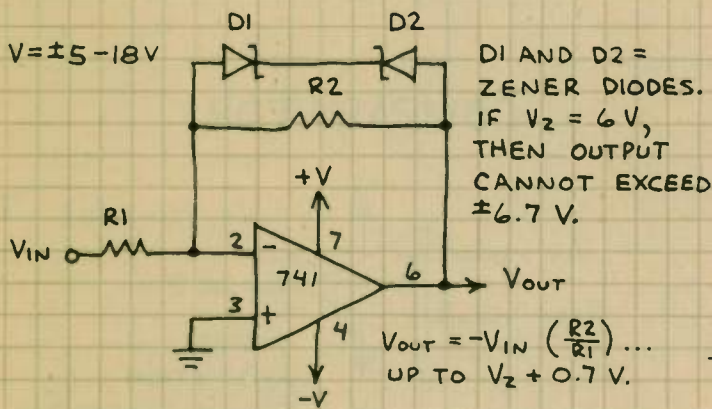 D1
D2
V=±5-18V
D1 AND D2 =
ZENER DIODES.
IF VZ = 6 V,
THEN OUTPUT
CANNOT EXCEED
±6.7 V.
R2
+V
R1
VIN
2
-
7
741
6
VOUT
3
+
4
-V
VOUT = -VIN (R2/R1) ...
UP TO VZ + 0.7 V.